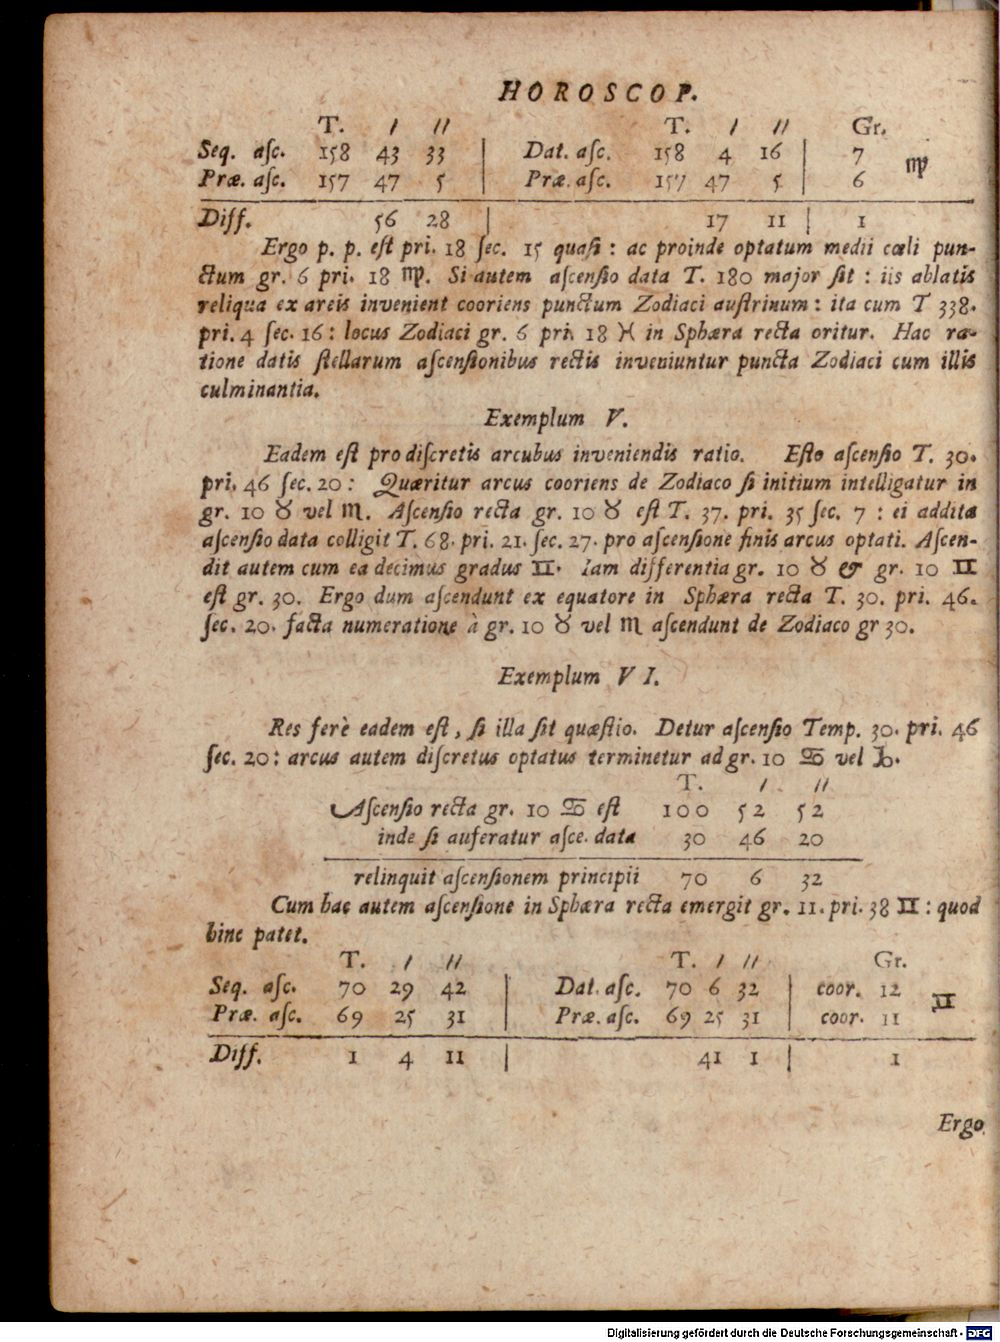 HOROSCOP.
T. / // T. / // Gr.
Seq. aſc. 158 43 33 | Dat. aſc. 158 4 16 | 7 ♍
Præ. aſc. 157 47 5 | Præ. aſc. 157 47 5 | 6
Diff. 56 28 | 17 11 | 1
Ergo p. p. eſt pri. 18 ſec. 15 quaſi : ac proinde optatum medii cœli pun-
ctum gr. 6 pri. 18 ♍. Si autem aſcenſio data T. 180 major ſit : iis ablatis
reliqua ex areis invenient cooriens punctum Zodiaci auſtrinum : ita cum T 338.
pri. 4 ſec. 16 : locus Zodiaci gr. 6 pri. 18 ♓ in Sphæra recta oritur. Hac ra-
tione datis ſtellarum aſcenſionibus rectis inveniuntur puncta Zodiaci cum illis
culminantia.
Exemplum V.
Eadem eſt pro diſcretis arcubus inveniendis ratio. Eſto aſcenſio T. 30.
pri. 46 ſec. 20 : Quæritur arcus cooriens de Zodiaco ſi initium intelligatur in
gr. 10 ♉ vel ♏. Aſcenſio recta gr. 10 ♉ eſt T. 37. pri. 35 ſec. 7 : ei addita
aſcenſio data colligit T. 68. pri. 21. ſec. 27. pro aſcenſione finis arcus optati. Aſcen-
dit autem cum ea decimus gradus ♊. Iam differentia gr. 10 ♉ & gr. 10 ♊
eſt gr. 30. Ergo dum aſcendunt ex equatore in Sphæra recta T. 30. pri. 46.
ſec. 20. facta numeratione à gr. 10 ♉ vel ♏ aſcendunt de Zodiaco gr 30.
Exemplum V I.
Res ferè eadem eſt, ſi illa ſit quæſtio. Detur aſcenſio Temp. 30. pri. 46
ſec. 20 : arcus autem diſcretus optatus terminetur ad gr. 10 ♋ vel ♑.
T. / //
Aſcenſio recta gr. 10 ♋ eſt 100 52 52
inde ſi auferatur aſce. data 30 46 20
relinquit aſcenſionem principii 70 6 32
Cum hac autem aſcenſione in Sphæra recta emergit gr. 11. pri. 38 ♊ : quod
hinc patet.
T. / // T. / // Gr.
Seq. aſc. 70 29 42 | Dat. aſc. 70 6 32 | coor. 12 ♊
Præ. aſc. 69 25 31 | Præ. aſc. 69 25 31 | coor. 11
Diff. 1 4 11 | 41 1 | 1
Ergo
Digitalisierung gefördert durch die Deutsche Forschungsgemeinschaft - DFG